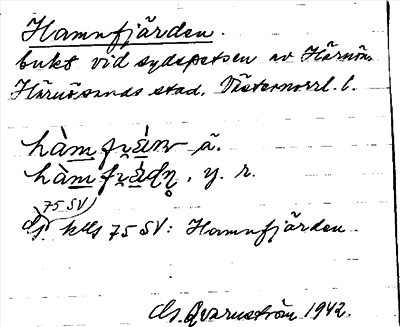 Hamnfjärden.
bukt vid sydspetsen av Härnön.
Härnösands stad. Västernorrl. l.
ä.
y. r.
75 SV
75 SV: Hamnfjärden.
Qvarnström 1942.